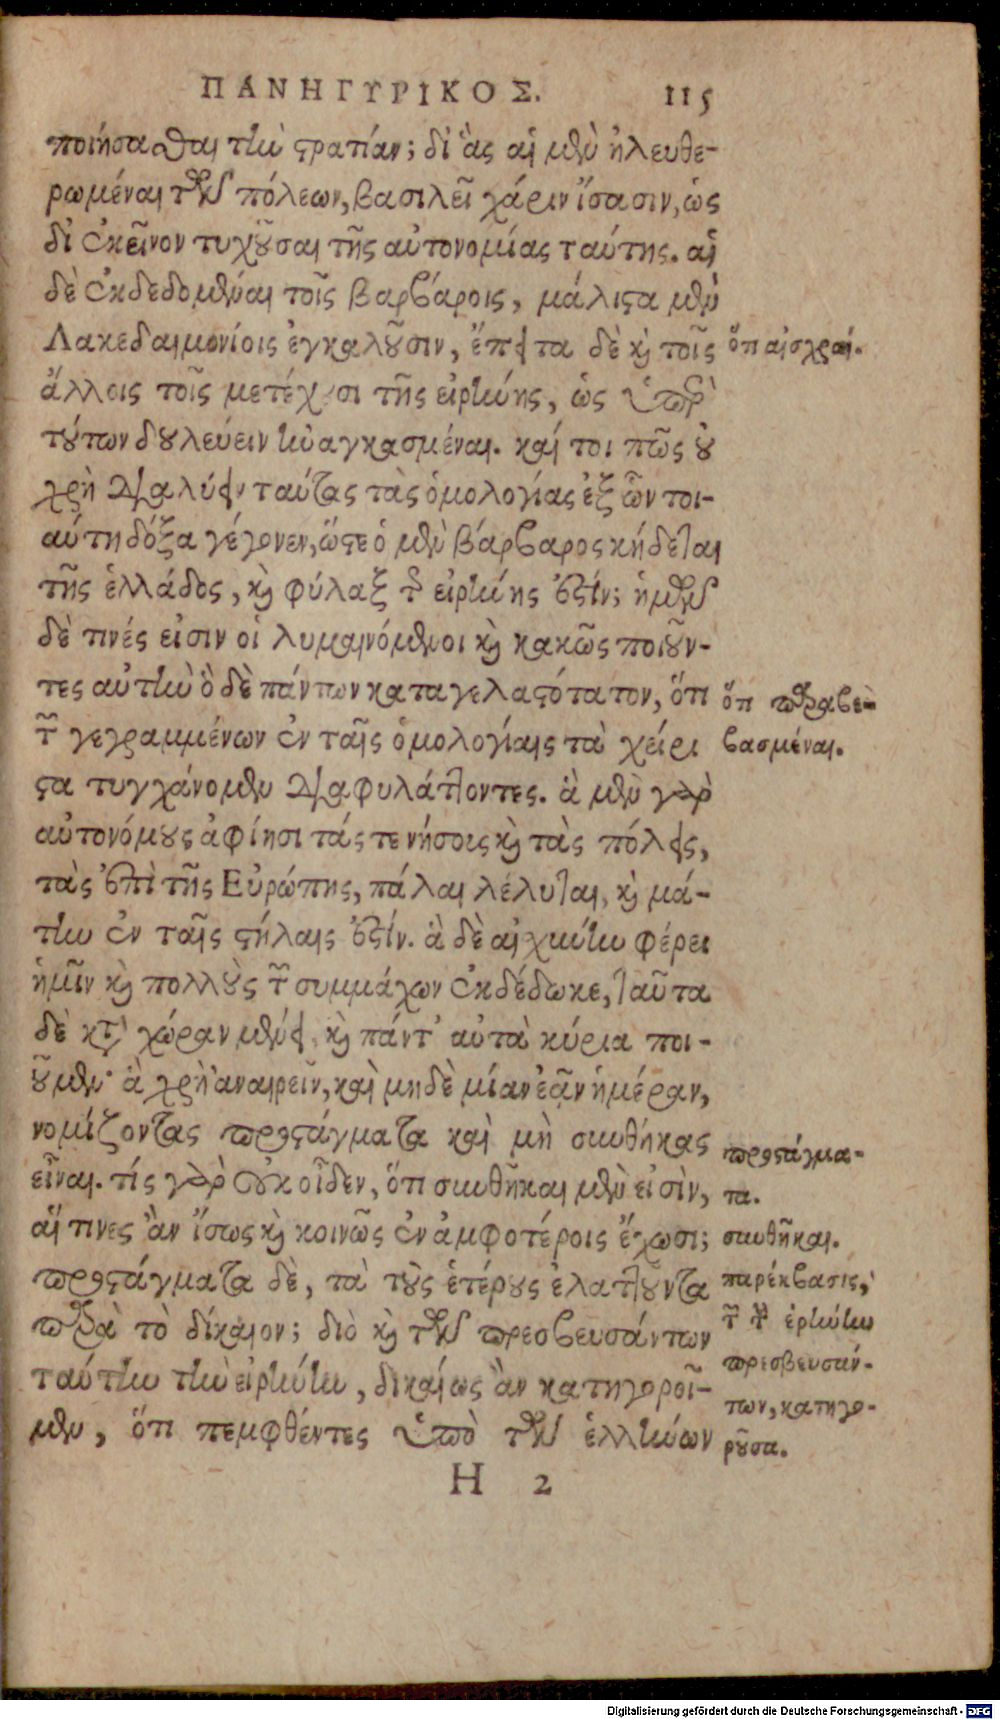 ΠΑΝΗΓΥΡΙΚΟΣ. 115
ποιήσασθαι τὴν στρατίαν; δι' ἃς αἱ μὲν ἠλευθε-
ρωμέναι τῶν πόλεων, βασιλεῖ χάριν ἴσασιν, ὡς
δι' ἐκεῖνον τυχοῦσαι τῆς αὐτονομίας ταύτης. αἱ
δὲ ἐκδεδομέναι τοῖς βαρβάροις, μάλιστα μὲν
Λακεδαιμονίοις ἐγκαλοῦσιν, ἔπειτα δὲ καὶ τοῖς
ἄλλοις τοῖς μετέχουσι τῆς εἰρήνης, ὡς ὑπὲρ
τούτων δουλεύειν ἠναγκασμέναι. καί τοι πῶς οὐ
χρὴ διαλύειν ταύτας τὰς ὁμολογίας ἐξ ὧν τοι-
αύτη δόξα γέγονεν, ὥστε ὁ μὲν βάρβαρος κήδεται
τῆς ἑλλάδος, καὶ φύλαξ τῆς εἰρήνης ἐστίν; ἡμῶν
δὲ τινές εἰσιν οἱ λυμαινόμενοι καὶ κακῶς ποιοῦν-
τες αὐτὴν ὃ δὲ πάντων καταγελαστότατον, ὅτι
τῶν γεγραμμένων ἐν ταῖς ὁμολογίαις τὰ χείρι
στα τυγχάνομεν διαφυλάττοντες. ἃ μὲν γὰρ
αὐτονόμους ἀφίησι τάς τε νήσοις καὶ τὰς πόλεις,
τὰς ἐπὶ τῆς Εὐρώπης, πάλαι λέλυται, καὶ μά-
την ἐν ταῖς στήλαις ἐστίν. ἃ δὲ αἰσχύνην φέρει
ἡμῖν καὶ πολλοὺς τῶν συμμάχων ἐκδέδωκε, ταῦτα
δὲ κατὰ χώραν μένει, καὶ πάντ' αὐτὰ κύρια ποι-
οῦμεν· ἃ χρὴ ἀναιρεῖν, καὶ μηδὲ μίαν ἐᾷν ἡμέραν,
νομίζοντας προστάγματα καὶ μὴ συνθήκας
εἶναι. τίς γὰρ οὐκ οἶδεν, ὅτι συνθῆκαι μὲν εἰσὶν,
αἵ τινες ἂν ἴσως καὶ κοινῶς ἐν ἀμφοτέροις ἔχωσι;
προστάγματα δὲ, τὰ τοὺς ἑτέρους ἐλαττοῦντα
παρὰ τὸ δίκαιον; διὸ καὶ τῶν πρεσβευσάντων
ταύτην τὴν εἰρήνην, δικαίως ἂν κατηγοροῖ-
μεν, ὅτι πεμφθέντες ὑπὸ τῶν ἑλλήνων
Η 2
ὅτι αἰσχραί.
ὅτι παραβε-
βασμέναι.
προστάγμα-
τα.
συνθῆκαι.
παρέκβασις,
τῶν τὴν ἐρήνην
πρεσβευσάν-
των, κατηγο-
ροῦσα.
Digitalisierung gefördert durch die Deutsche Forschungsgemeinschaft - DFG